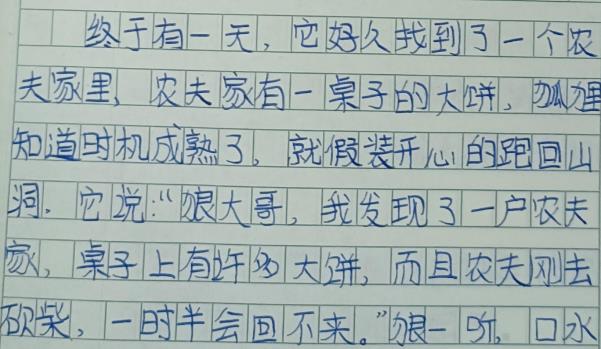 终于有一天，它好久找到了一个农
夫家里，农夫家有一桌子的大饼，狐狸
知道时机成熟了，就假装开心的跑回山
洞．它说：“狼大哥，我发现了一户农夫
家，桌子上有许多大饼，而且农夫刚去
砍柴，一时半会回不来。”狼一听，口水